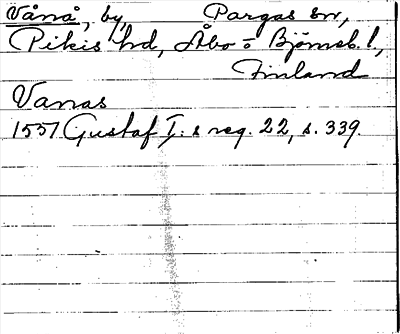 Vånå, by, Pargas sn,
Pikis hd, Åbo o Björneb. l,
Finland
Vanas
1557 Gustaf I: s reg. 22, s. 339.